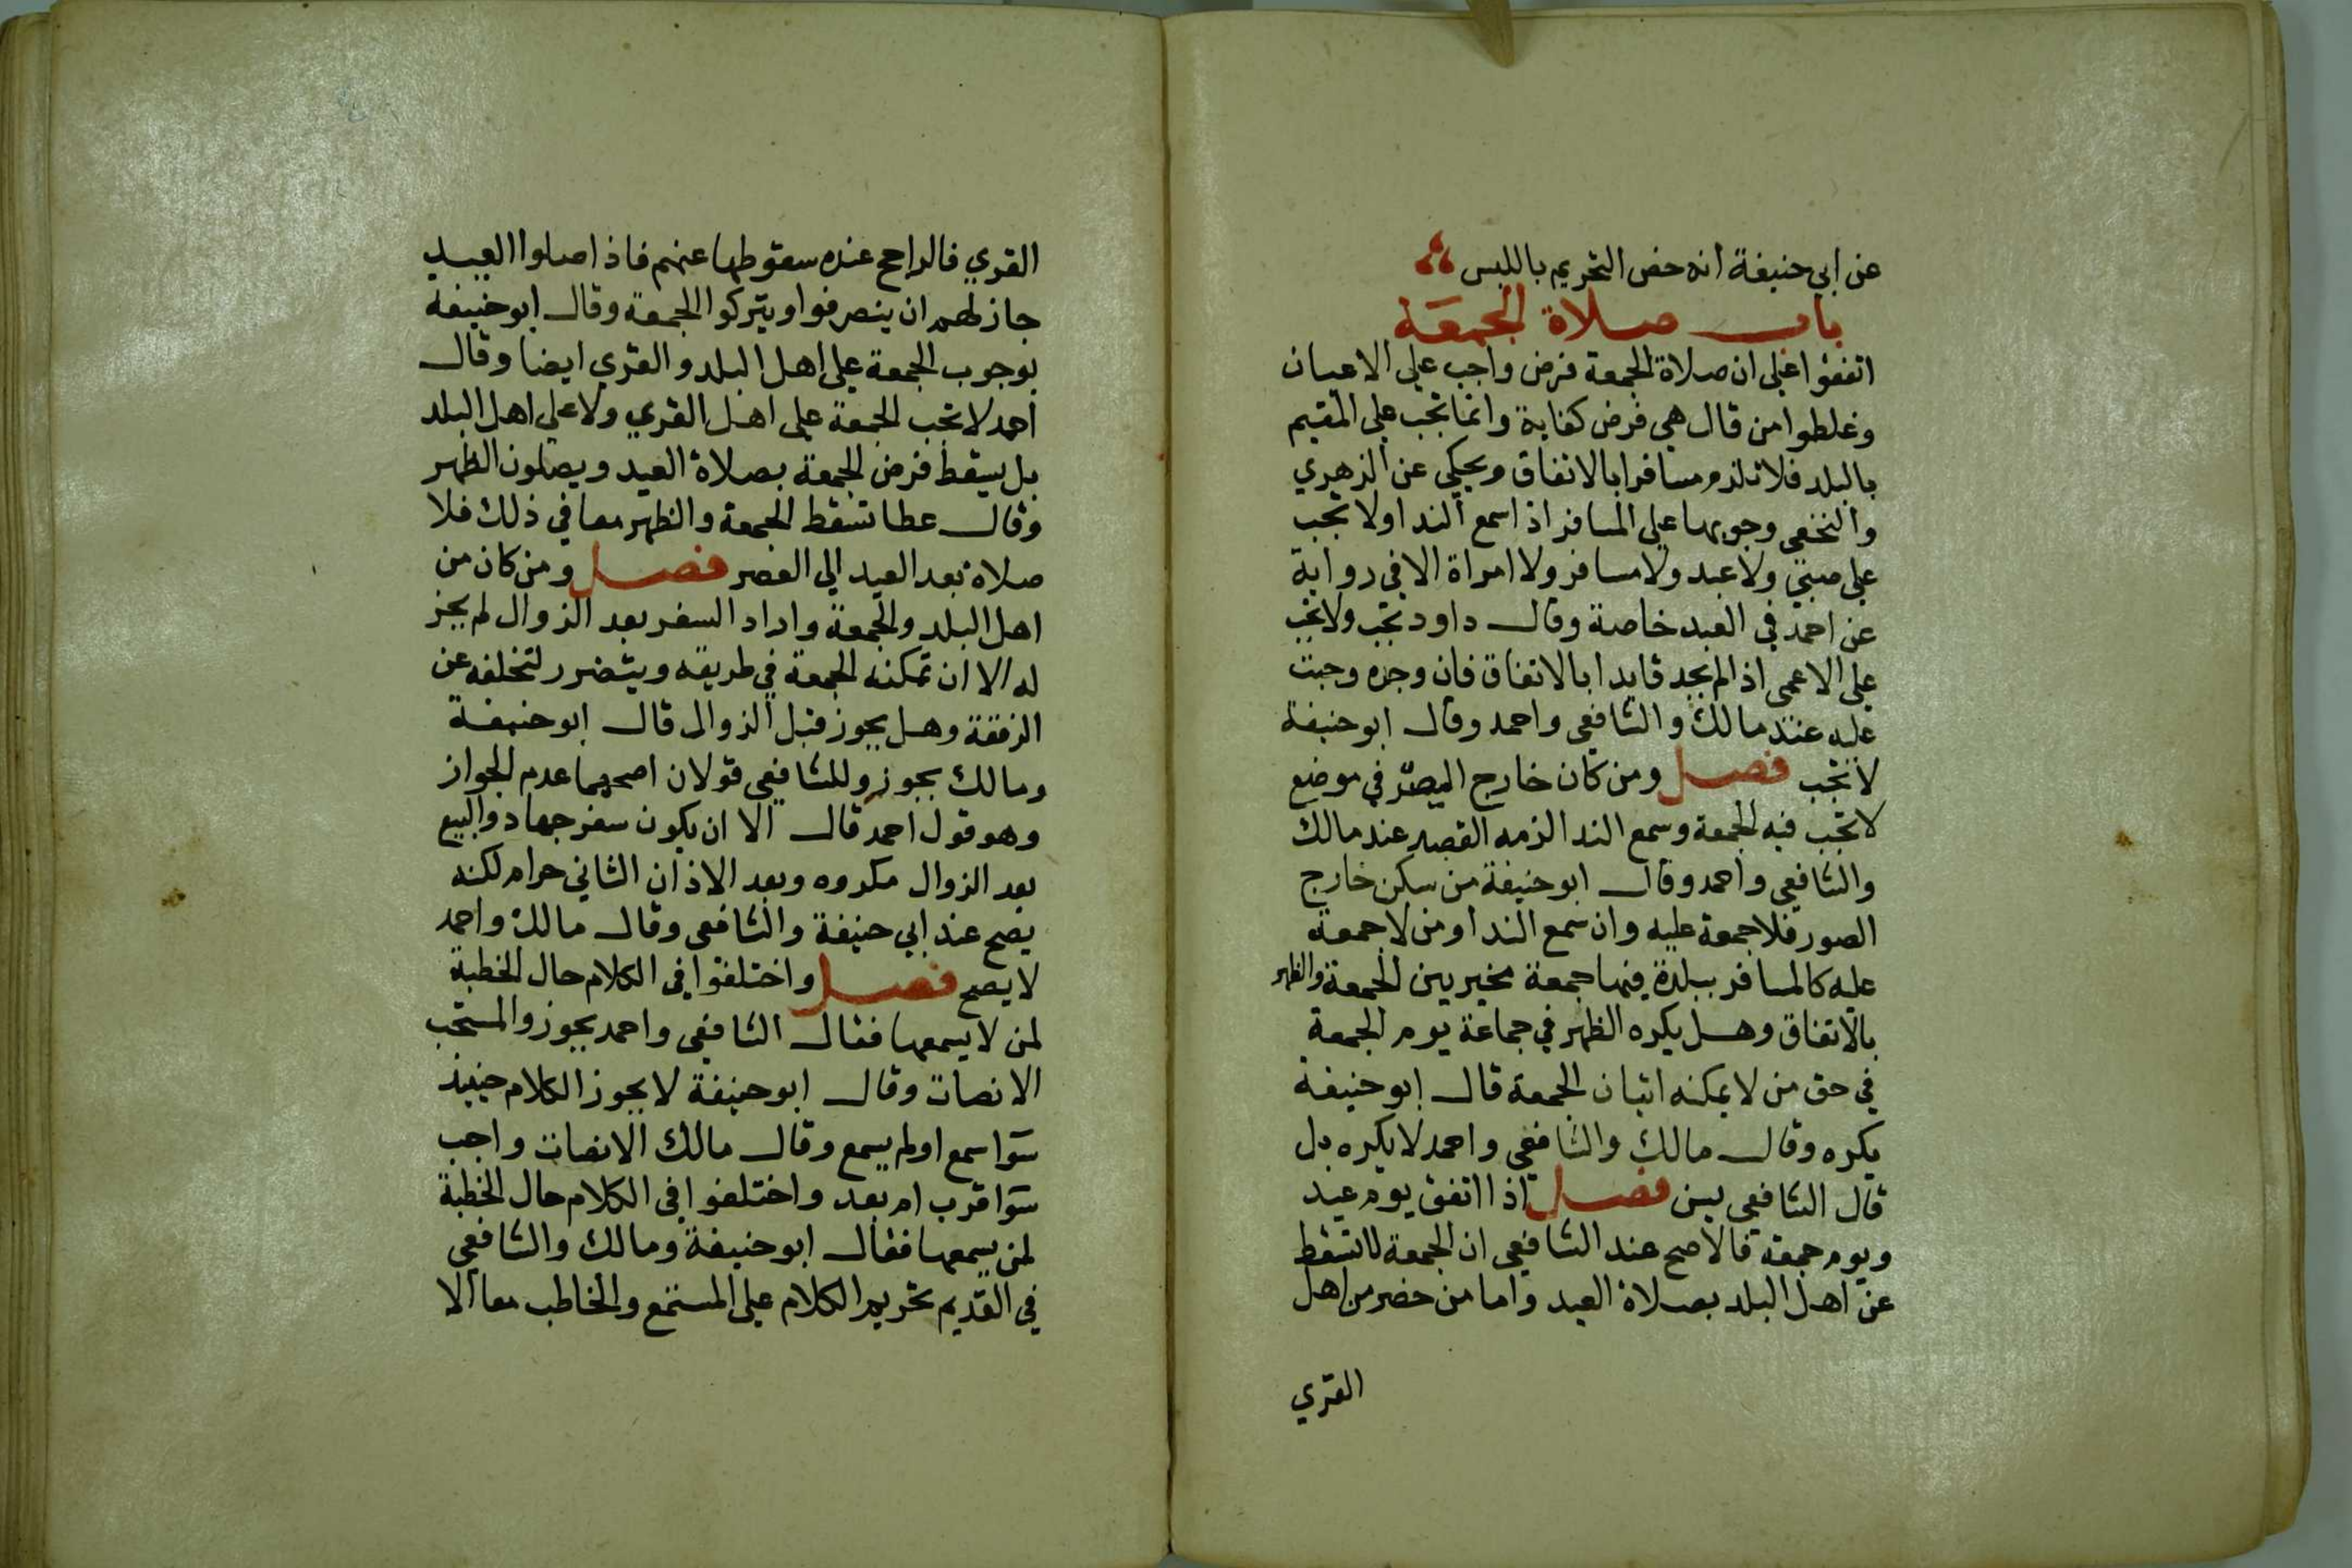 عن ابي حنيفة انه خص التحريم باللبس
باب صلاة الجمعة
اتفقوا على ان صلاة الجمعة فرض واجب على الاعيان
وغلطوا من قال هي فرض كفاية وانما تجب على المقيم
بالبلد فلا تلزم مسافرا بالاتفاق ويحكى عن الزهري
والنخعي وجوبها على المسافر اذا سمع الندا ولا تجب
على صبي ولا عبد ولا مسافر ولا امراة الا في رواية
عن احمد في العبد خاصة وقال داود تجب ولا تجب
على الاعمى اذا لم يجد قايدا بالاتفاق فان وجده وجبت
عليه عند مالك والشافعي واحمد وقال ابو حنيفة
لا تجب فصل ومن كان خارج المصر في موضع
لا تجب فيه الجمعة وسمع الندا لزمه القصد عند مالك
والشافعي واحمد وقال ابو حنيفة من سكن خارج
الصور فلا جمعة عليه وان سمع الندا ومن لا جمعة
عليه كالمسافر ببلدة فيها جمعة مخير بين الجمعة والظهر
بالاتفاق وهل يكره الظهر في جماعة يوم الجمعة
في حق من لا يمكنه اتيان الجمعة قال ابو حنيفة
يكره وقال مالك والشافعي واحمد لا يكره بل
قال الشافعي يسن فصل اذا اتفق يوم عيد
ويوم جمعة فالاصح عند الشافعي ان الجمعة لا تسقط
عن اهل البلد بصلاة العيد واما من حضر من اهل
القري
القري فالراجح عنده سقوطها عنهم فاذا صلوا العيد
جاز لهم ان ينصرفوا ويتركوا الجمعة وقال ابو حنيفة
بوجوب الجمعة على اهل البلد والقري ايضا وقال
احمد لا تجب الجمعة على اهل القري ولا على اهل البلد
بل يسقط فرض الجمعة بصلاة العيد ويصلون الظهر
وقال عطا تسقط الجمعة والظهر معا في ذلك فلا
صلاة بعد العيد الي العصر فصل ومن كان من
اهل البلد والجمعة واراد السفر بعد الزوال لم يجز
له الا ان تمكنه الجمعة في طريقه ويتضرر لتخلفه عن
الرفقة وهل يجوز قبل الزوال قال ابو حنيفة
ومالك يجوز وللشافعي قولان اصحهما عدم الجواز
وهو قول احمد قال الا ان يكون سفر جهاد والبيع
بعد الزوال مكروه وبعد الاذان الثاني حرام لكنه
يصح عند ابي حنيفة والشافعي وقال مالك واحمد
لا يصح فصل واختلفوا في الكلام حال الخطبة
لمن لا يسمعها فقال الشافعي واحمد يجوز والمستحب
الانصات وقال ابو حنيفة لا يجوز الكلام حينيذ
سوا سمع او لم يسمع وقال مالك الانصات واجب
سوا قرب ام بعد واختلفوا في الكلام حال الخطبة
لمن يسمعها فقال ابو حنيفة ومالك والشافعي
في القديم تحريم الكلام على المستمع والخاطب معا الا